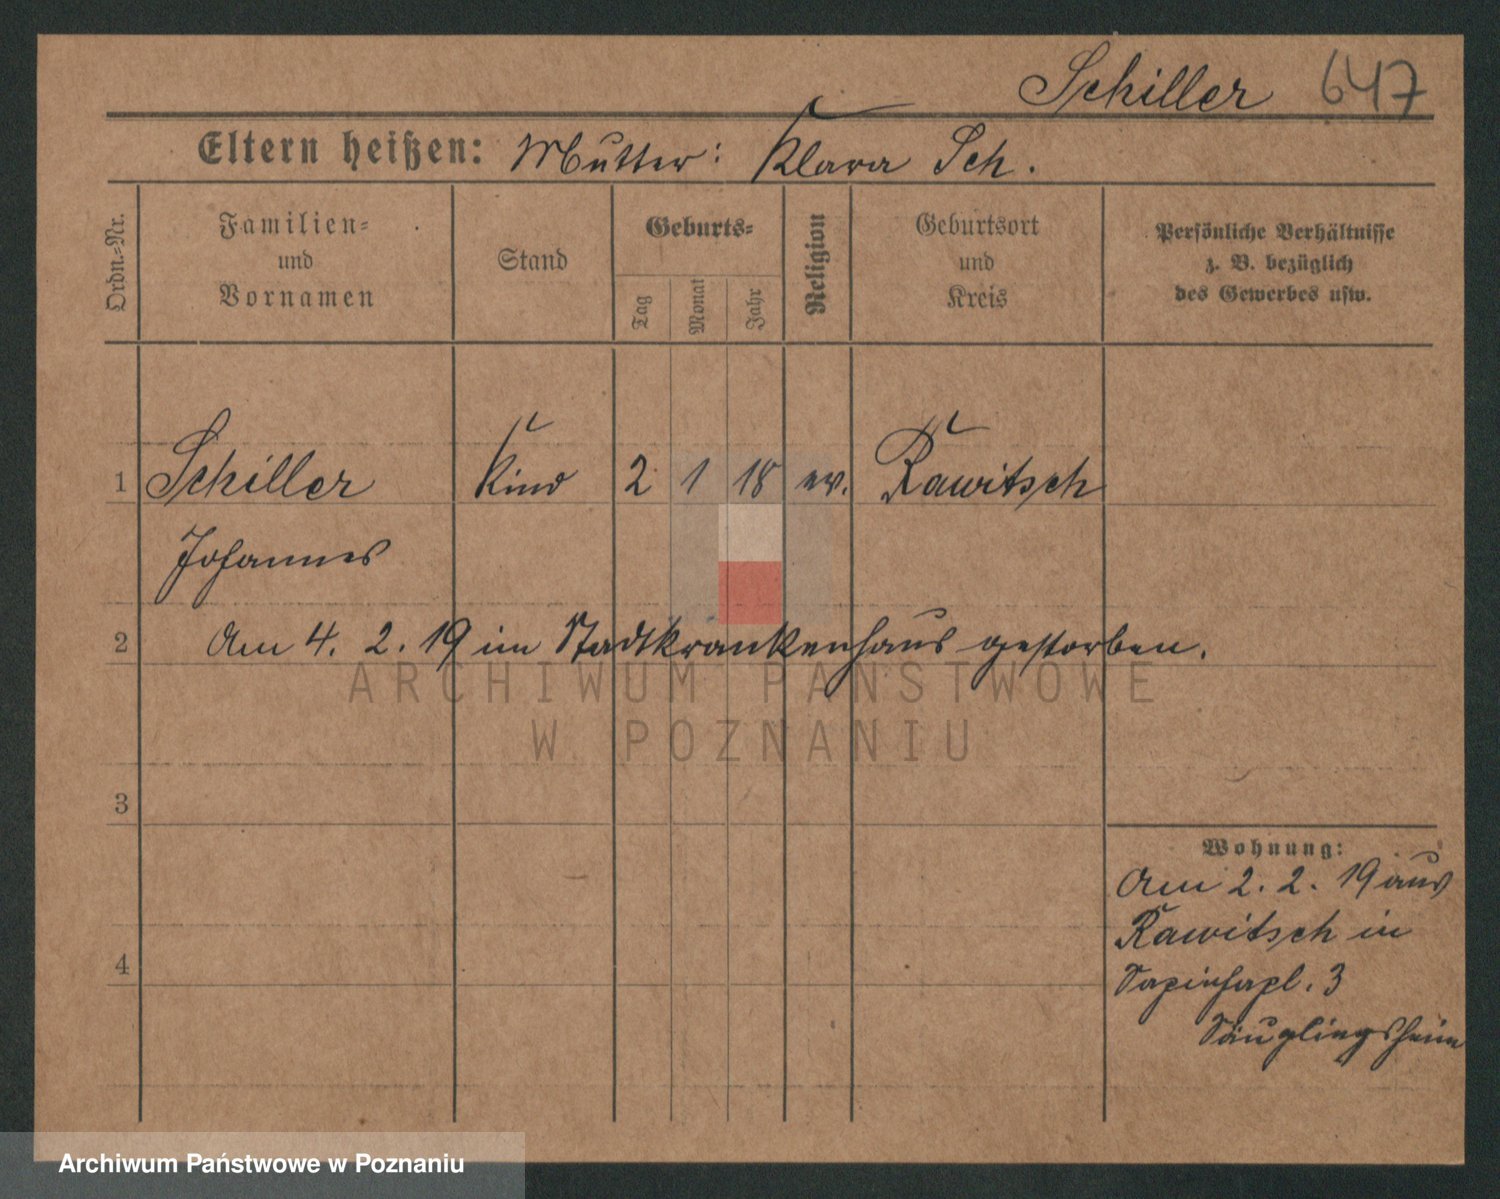 Schiller 647
Eltern heißen: Mutter: Klara Sch.
Ordn.-Nr.
Familien-
und
Vornamen
Stand
Geburts-
Tag
Monat
Jahr
Religion
Geburtsort
und
Kreis
Persönliche Verhältnisse
z. B. bezüglich
des Gewerbes usw.
1 Schiller Kind 2 1 18 ev. Rawitsch
Johannes
2 Am 4. 2. 19 im Stadtkrankenhaus gestorben.
ARCHIWUM PAŃSTWOWE
W POZNANIU
3
Wohnung:
Am 2. 2. 19 aus
Rawitsch in
4
Sapiehapl. 3
Säuglingsheim
Archiwum Państwowe w Poznaniu